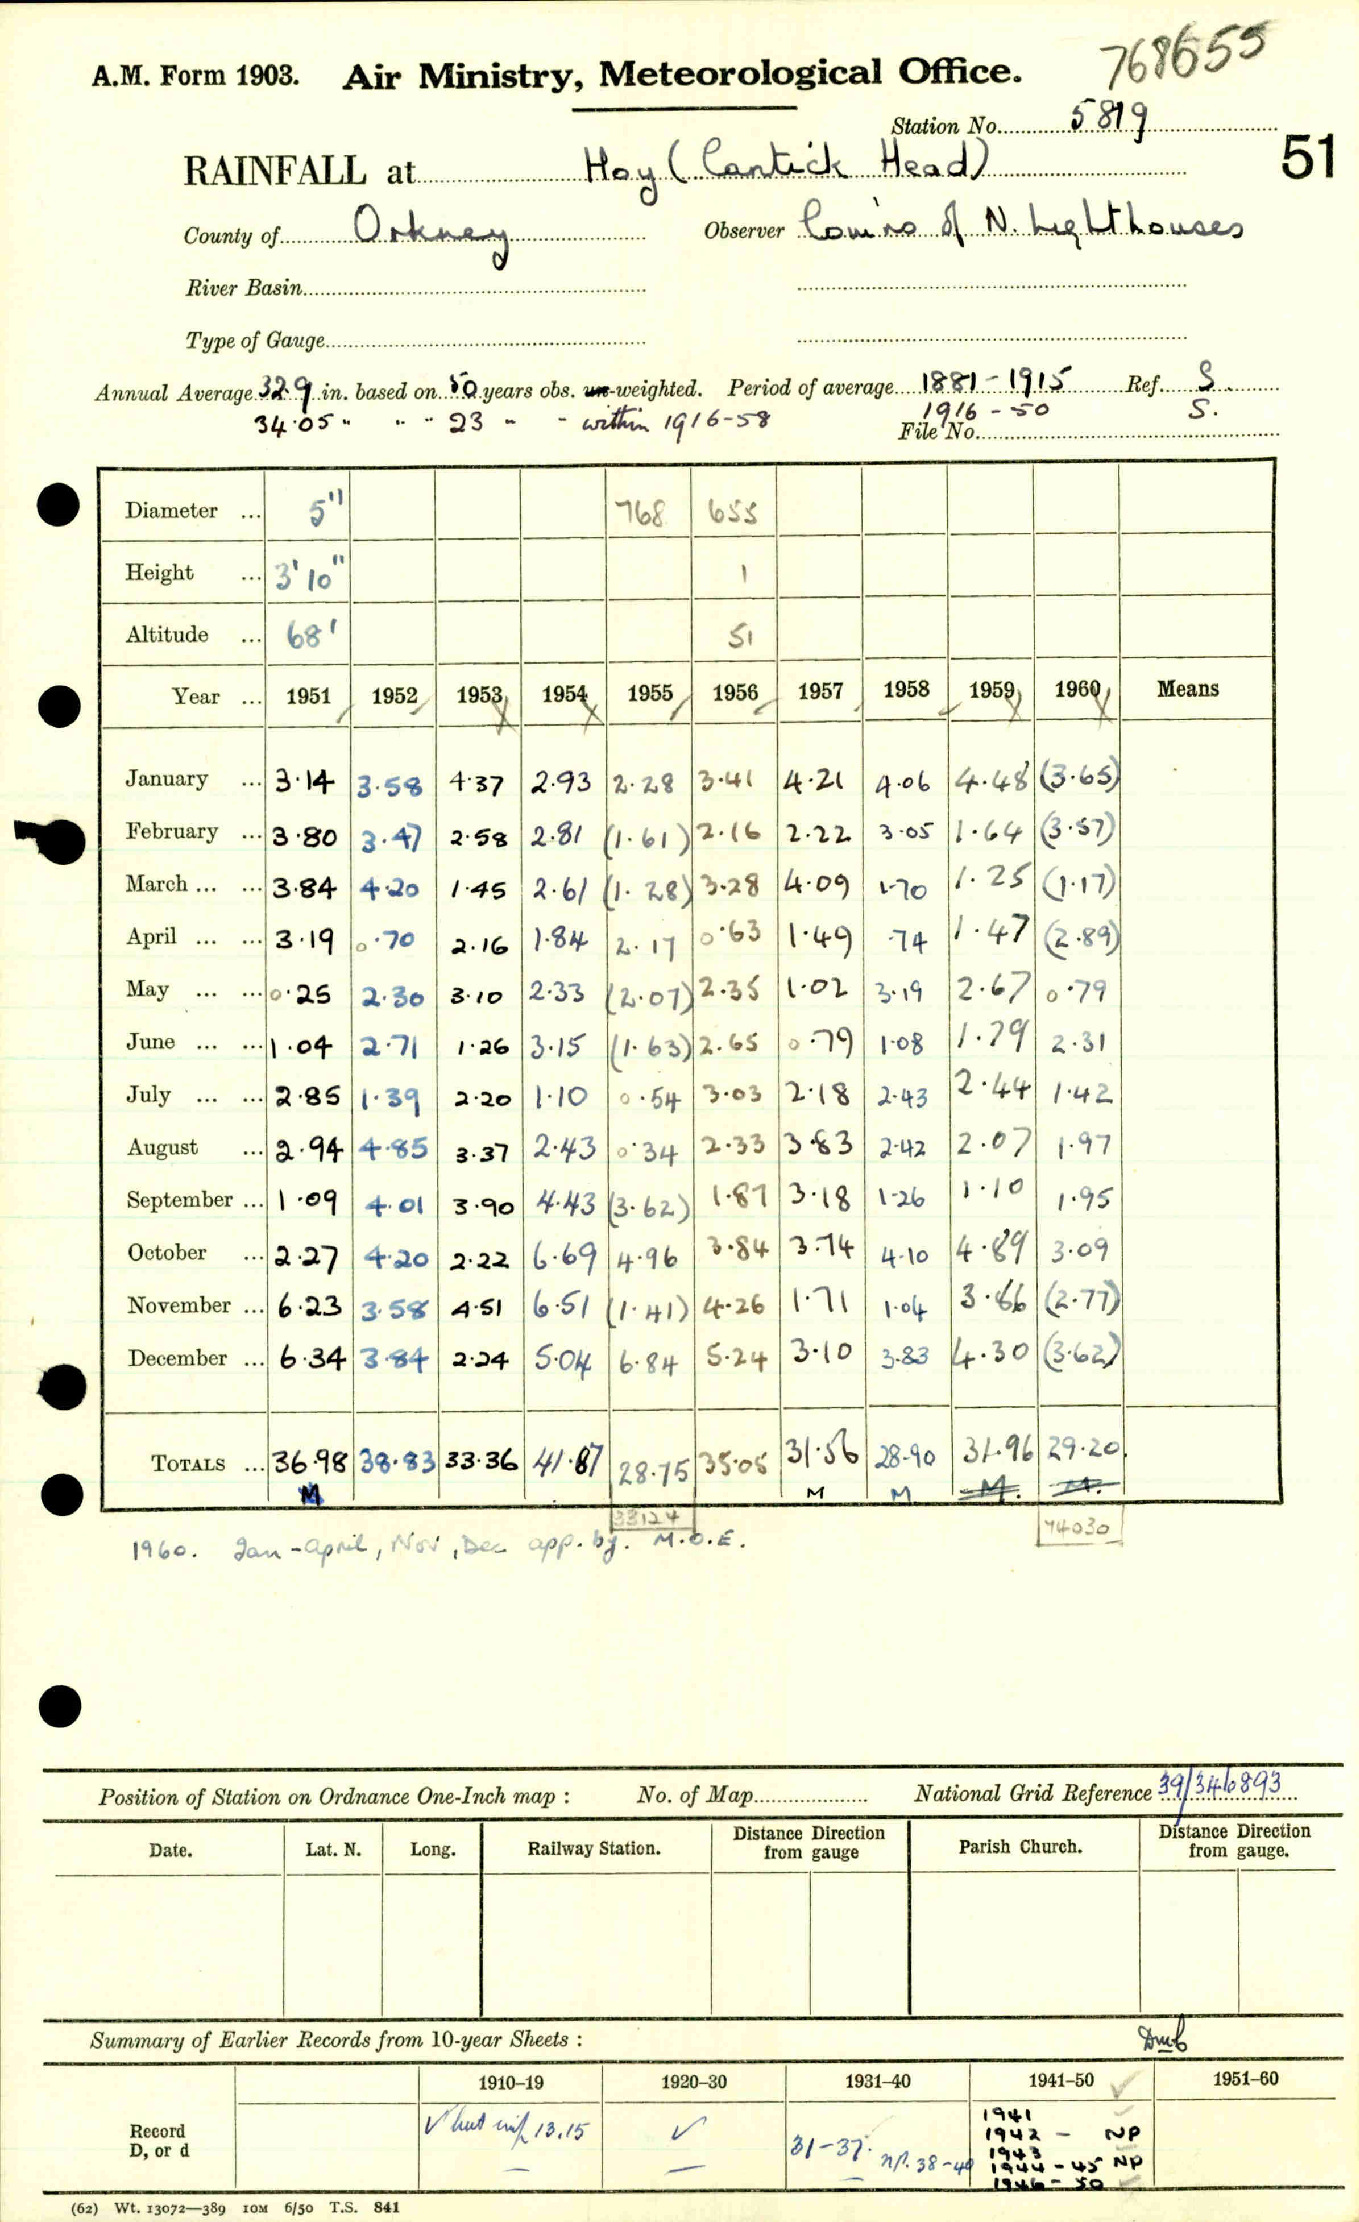 768655
A.M. Form 1903. Air Ministry, Meteorological Office.
Station No. 5819
51
RAINFALL at Hoy (Cantick Head)
County of Orkney Observer Com'rs of N. Lighthouses
River Basin
Type of Gauge
Annual Average 32.9 in. based on 50 years obs. un-weighted. Period of average 1881-1915 Ref. S.
34.05 " " " 23 " " within 1916-58 1916-50 S.
File No.
Diameter ... 5" 768 655
Height ... 3'10" 1
Altitude ... 68' 51
Year ... 1951 1952 1953 1954 1955 1956 1957 1958 1959 1960 Means
January ... 3.14 3.58 4.37 2.93 2.28 3.41 4.21 4.06 4.48 (3.65)
February ... 3.80 3.47 2.58 2.81 (1.61) 2.16 2.22 3.05 1.64 (3.57)
March ... ... 3.84 4.20 1.45 2.61 (1.28) 3.28 4.09 1.70 1.25 (1.17)
April ... ... 3.19 0.70 2.16 1.84 2.17 0.63 1.49 .74 1.47 (2.89)
May ... ... 0.25 2.30 3.10 2.33 (2.07) 2.35 1.02 3.19 2.67 0.79
June ... ... 1.04 2.71 1.26 3.15 (1.63) 2.65 0.79 1.08 1.79 2.31
July ... ... 2.85 1.39 2.20 1.10 0.54 3.03 2.18 2.43 2.44 1.42
August ... 2.94 4.85 3.37 2.43 0.34 2.33 3.83 2.42 2.07 1.97
September ... 1.09 4.01 3.90 4.43 (3.62) 1.87 3.18 1.26 1.10 1.95
October ... 2.27 4.20 2.22 6.69 4.96 3.84 3.74 4.10 4.89 3.09
November ... 6.23 3.58 4.51 6.51 (1.41) 4.26 1.71 1.04 3.86 (2.77)
December ... 6.34 3.84 2.24 5.04 6.84 5.24 3.10 3.83 4.30 (3.62)
TOTALS ... 36.98 38.83 33.36 41.87 28.75 35.05 31.56 28.90 31.96 29.20
M M M M. M.
33124 74030
1960. Jan-April, Nov, Dec app. by. M.O.E.
Position of Station on Ordnance One-Inch map : No. of Map National Grid Reference 39/346893
Date. Lat. N. Long. Railway Station. Distance Direction from gauge Parish Church. Distance Direction from gauge.
Summary of Earlier Records from 10-year Sheets : Dmb
1910-19 1920-30 1931-40 1941-50 1951-60
Record D, or d
✓ but 13.15 ✓ 31-37. np. 38-40
1941
1942 - NP
1943
1944-45 NP
1946-50
(62) Wt. 13072-389 10M 6/50 T.S. 841